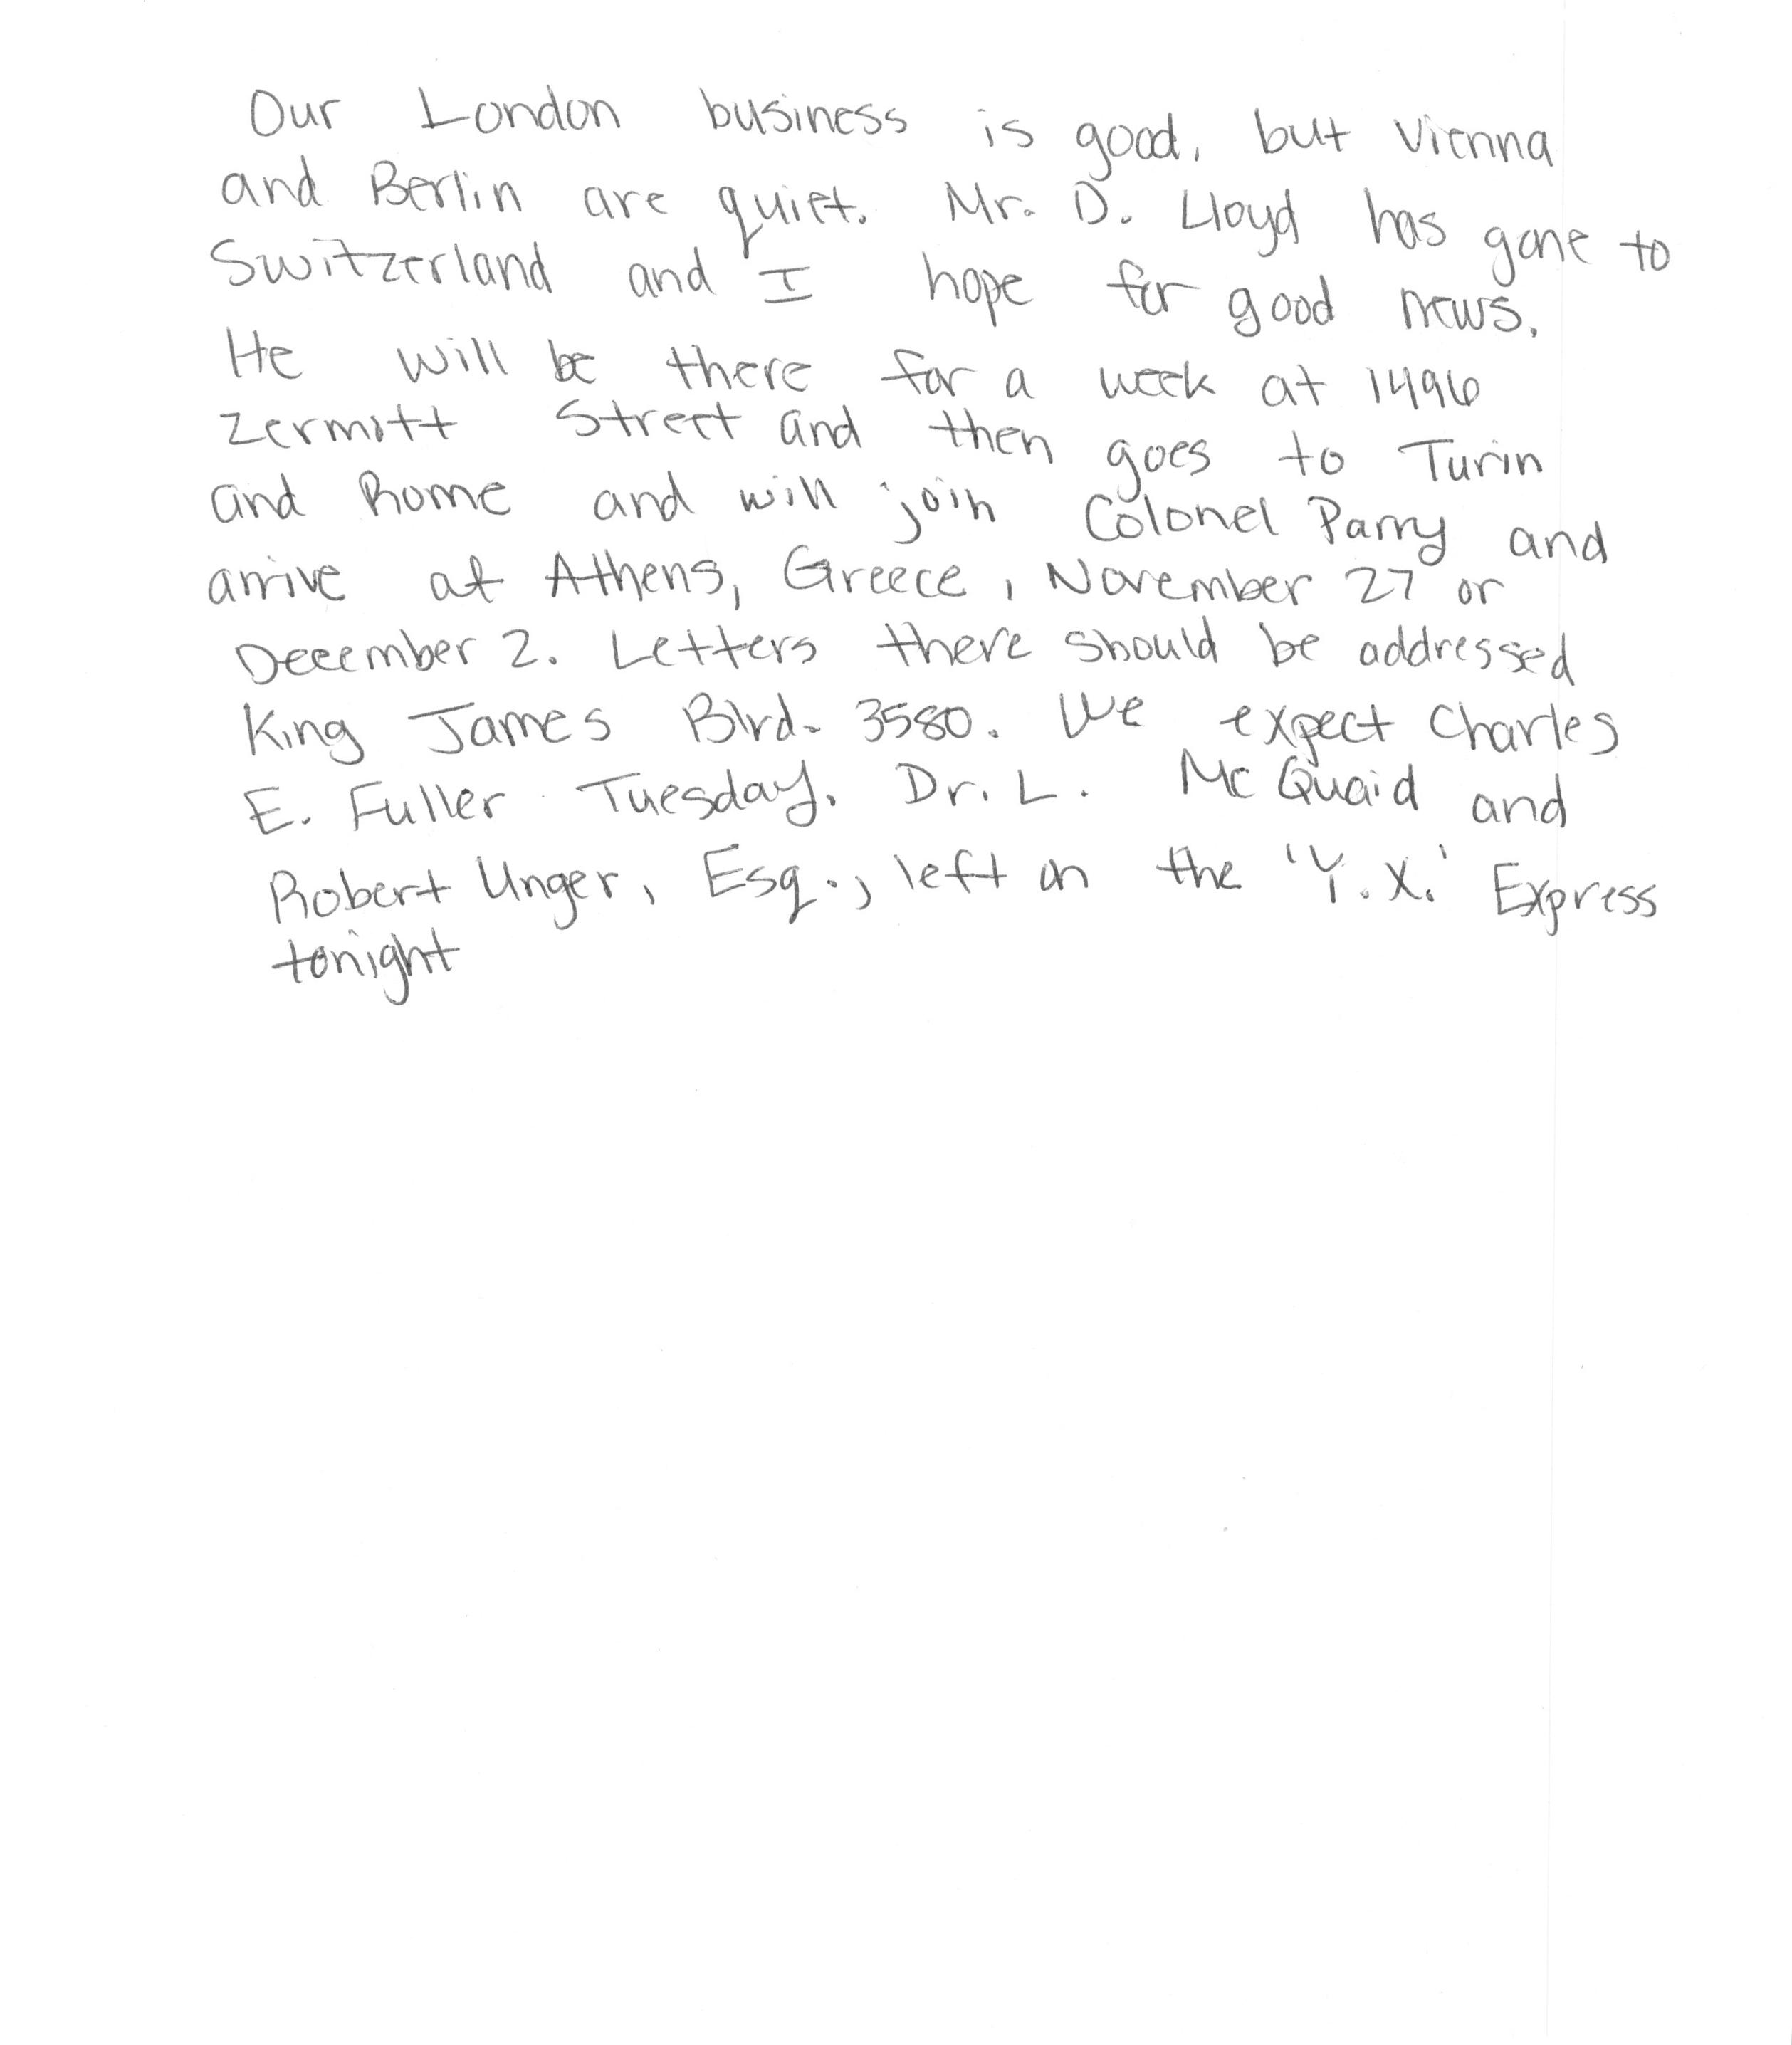 Our London business is good, but Vienna
and Berlin are quiet. Mr. D. Lloyd has gone to
Switzerland and I hope for good news.
He will be there for a week at 1496
Zermott Street and then goes to Turin
and Rome and will join Colonel Parry and
arrive at Athens, Greece, November 27 or
December 2. Letters there should be addressed
King James Blvd. 3580. We expect Charles
E. Fuller Tuesday. Dr. L. McQuaid and
Robert Unger, Esq., left on the 'Y.X.' Express
tonight